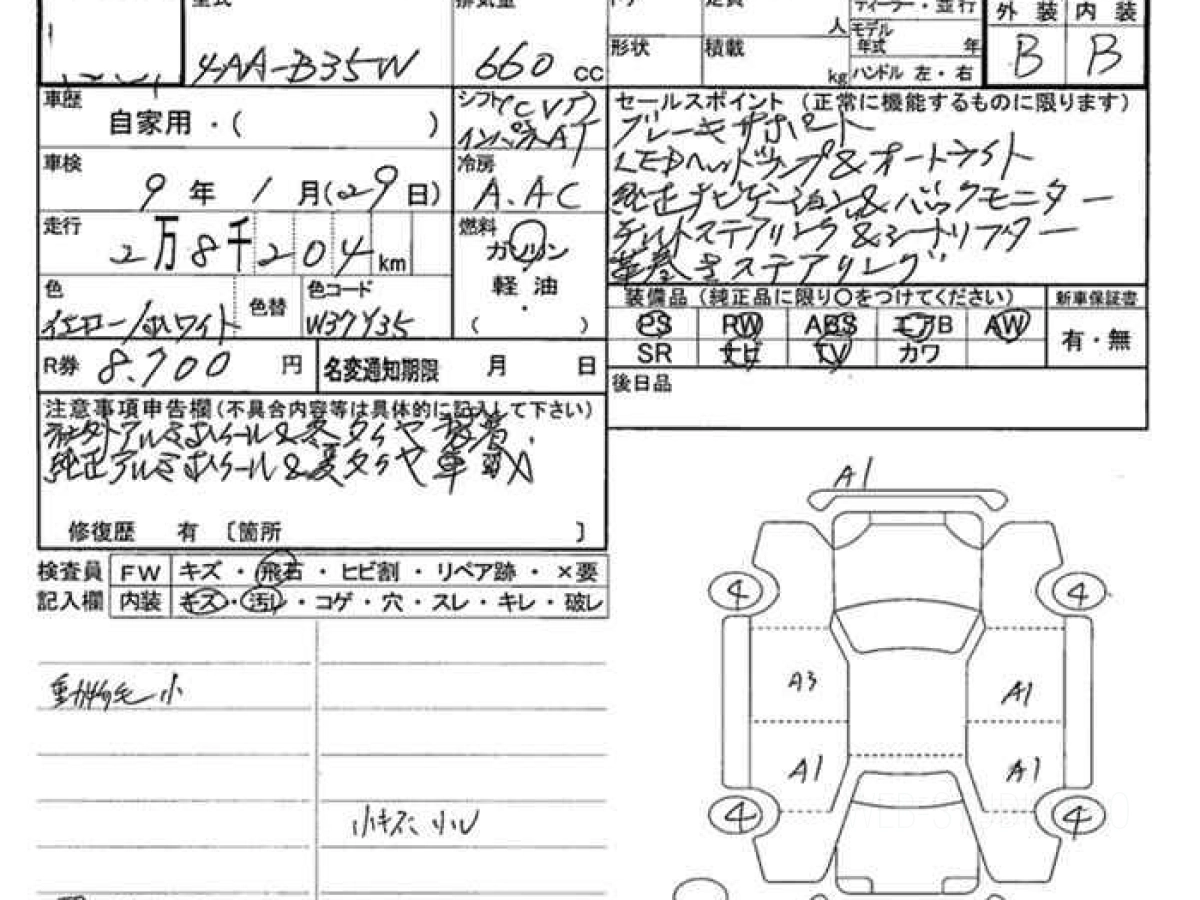 型式
排気量
ディーラー・並行
外装 内装
4AA-B35W
660 cc
人
モデル年式 年
B B
形状
積載
kg
ハンドル 左・右
車歴
自家用・( )
シフト(CVT)
インパネAT
セールスポイント (正常に機能するものに限ります)
ブレーキサポート
LEDヘッドランプ&オートライト
純正ナビゲーション&バックモニター
チルトステアリング&シートリフター
革巻きステアリング
車検
9年1月(29日)
冷房
A.AC
走行
2万8千204km
燃料
ガソリン
軽油
・
( )
色
イエロー/ホワイト
色替
色コード
W37Y35
装備品 (純正品に限り○をつけてください)
新車保証書
PS PW ABS エアB AW
SR ナビ TV カワ
有・無
R券 8.700 円
名変通知期限 月 日
後日品
注意事項申告欄(不具合内容等は具体的に記入して下さい)
社外アルミホイール&冬タイヤ装着.
純正アルミホイール&夏タイヤ車内
修復歴 有 〔箇所 〕
検査員
記入欄
FW キズ・飛石・ヒビ割・リペア跡・×要
内装 キズ・汚レ・コゲ・穴・スレ・キレ・破レ
動物毛小
小キズ、小凹
A1
4 4
A3 A1
A1 A1
4 4